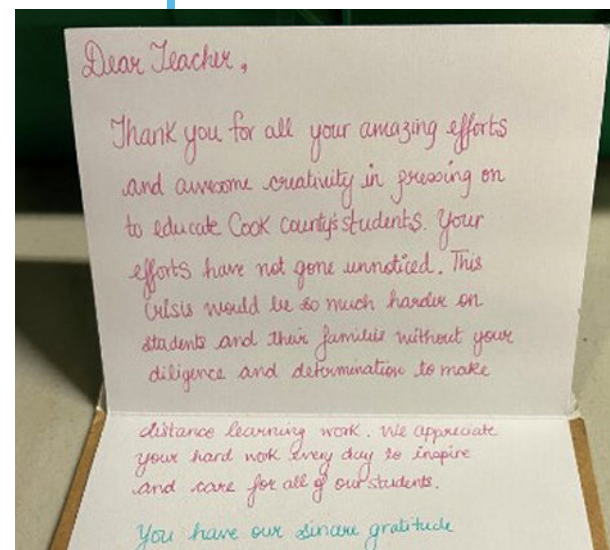 Dear Teacher,
Thank you for all your amazing efforts
and awesome creativity in pressing on
to educate Cook County's students. Your
efforts have not gone unnoticed. This
Crisis would be so much harder on
students and their families without your
diligence and determination to make
distance learning work. We appreciate
your hard work every day to inspire
and care for all of our students.
You have our sincere gratitude